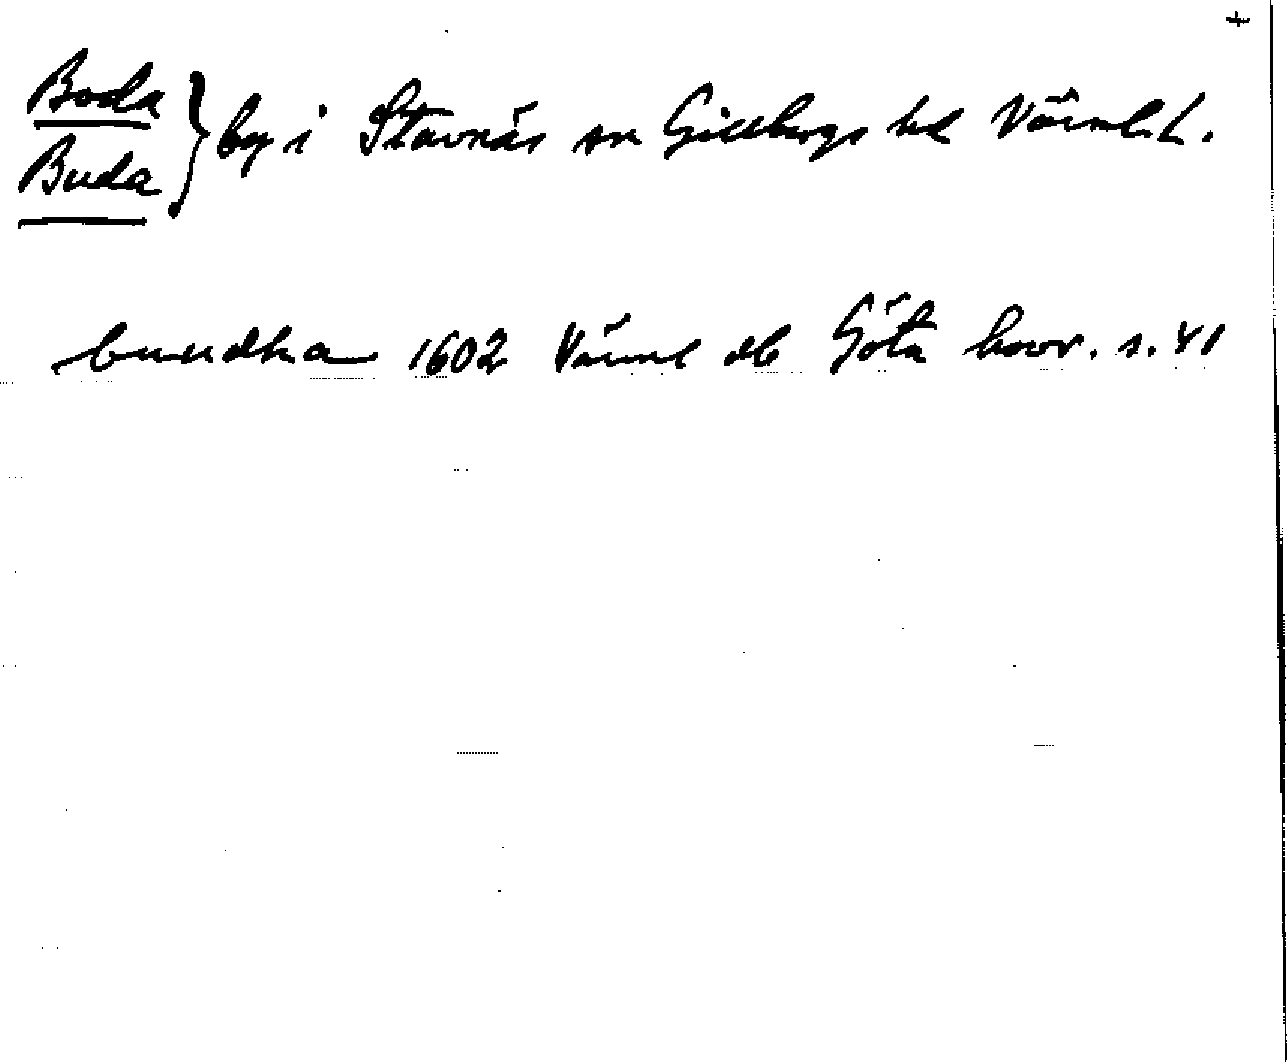 +
Boda
Buda } by i Stavnäs sn Gillbergs hd Värml. L.
buudha 1602 Värml db Göta hovr. s. 41